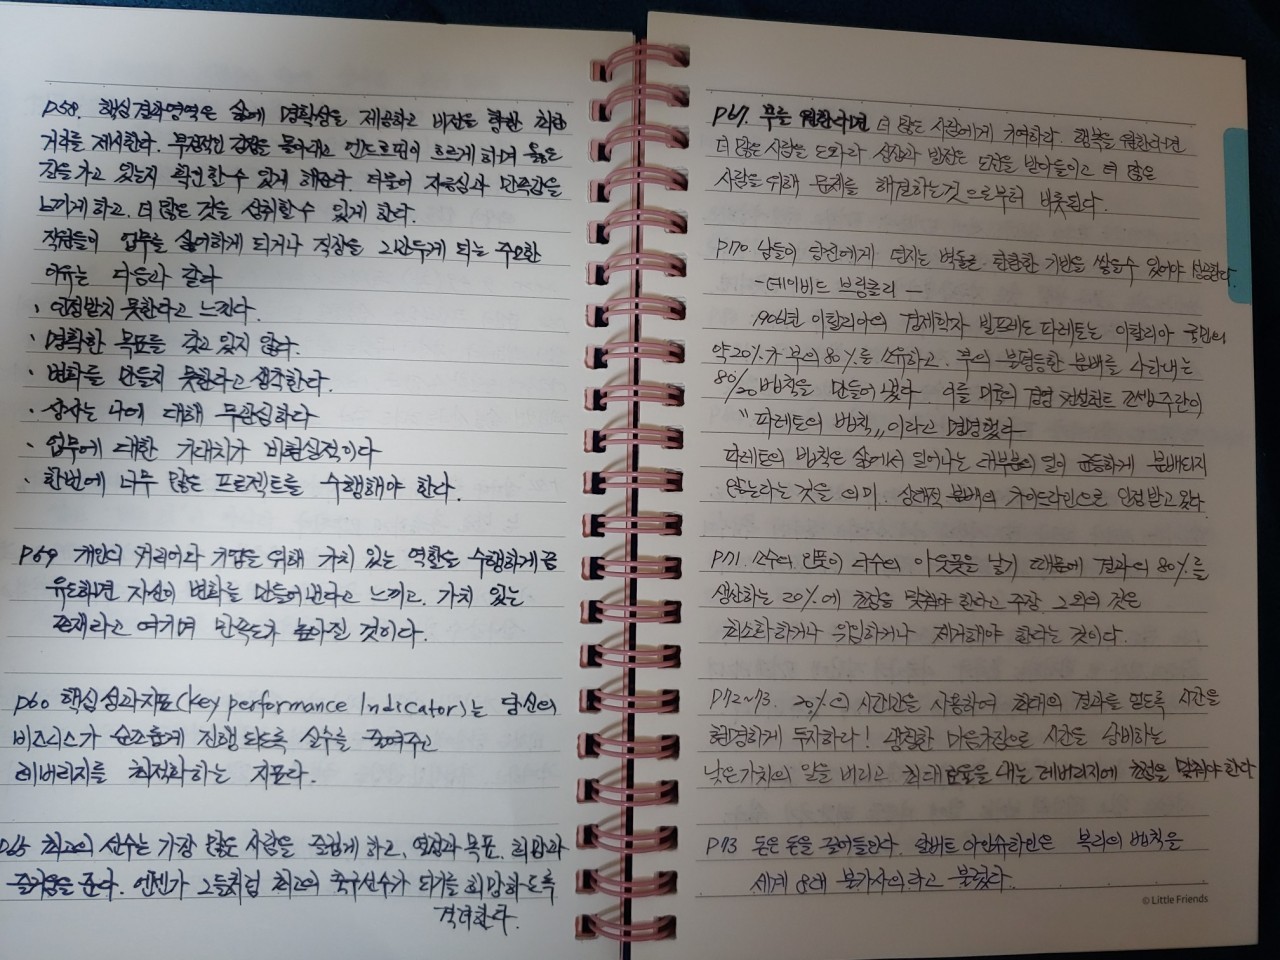 P58. 핵심결과영역은 삶에 명확성을 제공하고 비전을 향한 최단
거리를 제시한다. 부정적인 감정을 몰아내고 엔드로핀이 흐르게 하며 옳은
길을 가고 있는지 확인할 수 있게 해준다. 더불어 자긍심과 만족감을
느끼게 하고, 더 많은 것을 성취할 수 있게 한다.
직원들이 업무를 싫어하게 되거나 직장을 그만두게 되는 주요한
이유는 다음과 같다
· 인정받지 못한다고 느낀다.
· 명확한 목표를 갖고 있지 않다.
· 변화를 만들지 못한다고 생각한다.
· 상사는 나에 대해 무관심하다
· 업무에 대한 기대치가 비현실적이다
· 한번에 너무 많은 프로젝트를 수행해야 한다.
P59 개인의 커리어와 기업을 위해 가치 있는 역할을 수행하게끔
유도하면 자신이 변화를 만들어낸다고 느끼고, 가치 있는
존재라고 여기며 만족도가 높아질 것이다.
P60 핵심성과지표(key performance Indicator)는 당신의
비즈니스가 순조롭게 진행되도록 실수를 줄여주고
레버리지를 최적화하는 지표다.
P65 최고의 선수는 가장 많은 사람을 즐겁게 하고, 열정과 목표, 희망과
즐거움을 준다. 언젠가 그들처럼 최고의 축구선수가 되기를 희망하도록
격려한다.
P67. 부를 원한다면 더 많은 사람에게 기여하라. 행복을 원한다면
더 많은 사람을 도와라 성장과 발전은 도전을 받아들이고 더 많은
사람을 위해 문제를 해결하는것으로부터 비롯된다.
P70 남들이 당신에게 던지는 벽돌로 탄탄한 기반을 쌓을수 있어야 성공한다.
- 데이비드 브링클리 -
1906년 이탈리아의 경제학자 빌프레도 파레토는 이탈리아 국민의
약20%가 부의 80%를 소유하고, 부의 불평등한 분배를 나타내는
80/20법칙을 만들어 냈다 이를 미국의 경영 컨설턴트 조셉 주란이
"파레토의 법칙" 이라고 명명했다
파레토의 법칙은 삶에서 일어나는 대부분의 일이 균등하게 분배되지
않는다는 것을 의미. 상대적 분배의 가이드라인으로 인정받고 왔다
P71. 소수의 인풋이 다수의 아웃풋을 낳기 때문에 결과의 80%를
생산하는 20%에 초점을 맞춰야 한다고 주장. 그외의 것은
최소화하거나 위임하거나 제거해야 한다는 것이다.
P72~73. 20%의 시간만을 사용하여 최대의 결과를 얻도록 시간을
현명하게 투자하라! 마음가짐으로 시간을 낭비하는
낮은가치의 일을 버리고 최대효율을 내는 레버리지에 초점을 맞춰야 한다
P73 돈은 돈을 끌어들인다. 알버트 아인슈타인은 복리의 법칙을
세계 8대 불가사의라고 불렀다.
© Little Friends